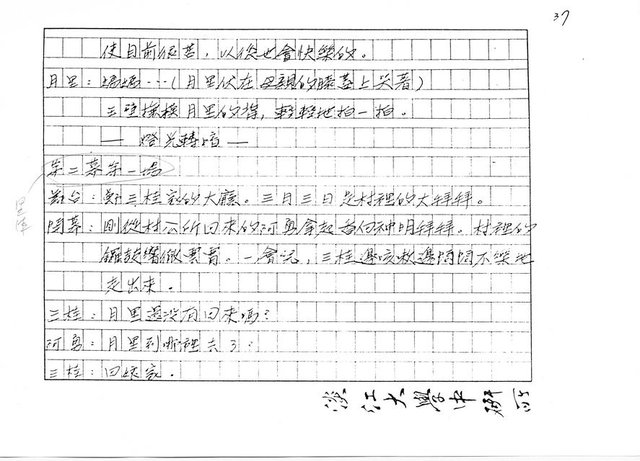 37
使目前很苦，以後也會快樂的。
月里：媽媽…（月里伏在母親的膝蓋上哭著）
三桂撫摸月里的揹，輕輕地拍一拍。
— 燈光轉暗 —
第三幕第一場
舞台：鄭三桂家的大廳。三月三日是村裡的大拜拜。
開幕：剛從村公所回來的河勇拿起香向神明拜拜。村裡的
鑼鼓聲做背景。一會兒，三桂邊咳嗽邊悶悶不樂地
走出來。
三桂：月里還沒有回來嗎？
河勇：月里到哪裡去了？
三桂：回娘家。
淡江大學中研所